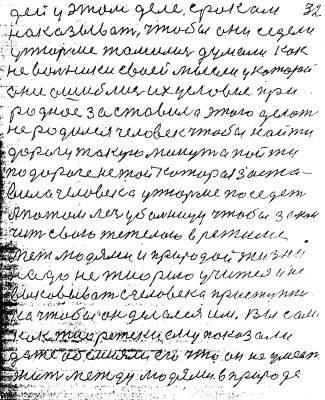 дей у этом деле, сроками 32
наказывать, чтобы они седели
у тюрме томились думали как
не воинки своей мысли у которой
они ошиблись их условие при
родное заставила этого делать
не родился человек чтобы найти
дорогу такую минута пойти
по дороге не той которая заста-
вила человека у тюрме посидеть
А потом леч у больницу чтобы закон
чить свою тежолою в режиме.
Мет людями и природой жизни
надо не тюрмою учится и не
человека приступни
ка чтобы он делался им. Вы сами
как творетели ему показали
даже об его что он не умеет
жит между людями. в природе